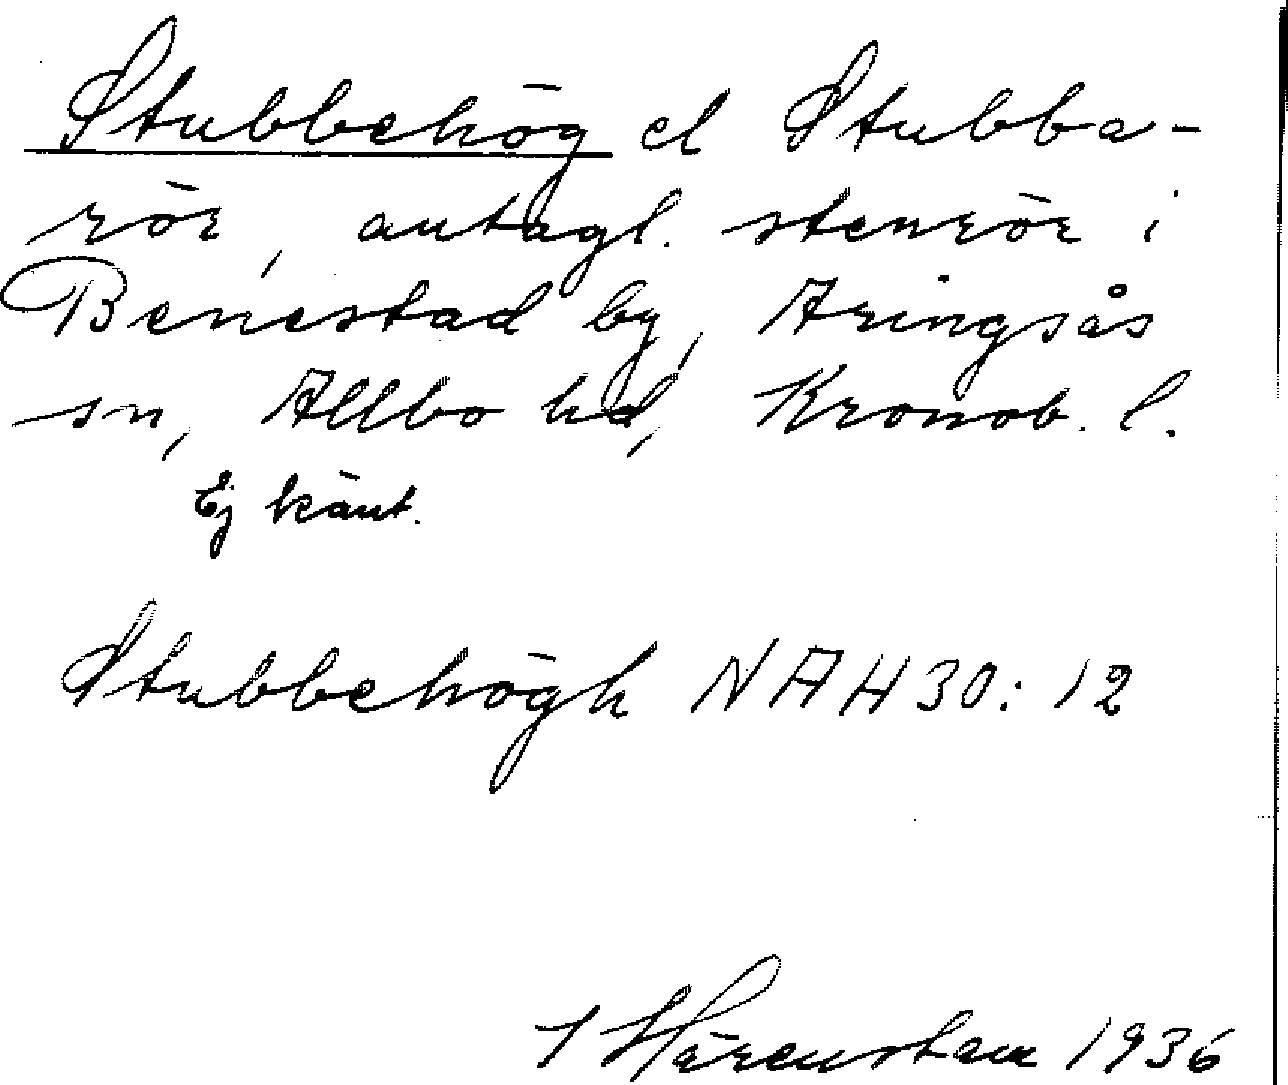 Stubbehög el Stubba-
rör, antagl. stenrör i
Benestad by, Aringsås
sn, Allbo hd, Kronob. l.
Ej känt.
Stubbehögh NAH30:12
Härenstam 1936